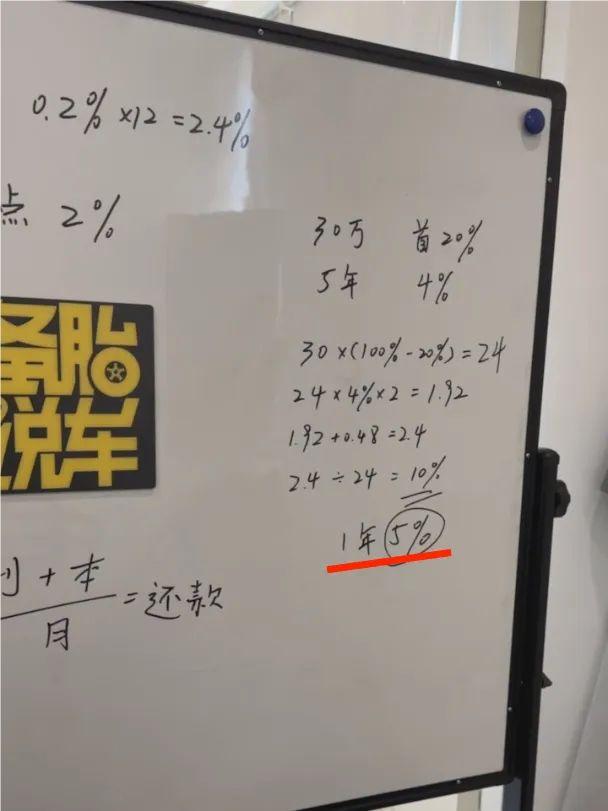 0.2% ×12 = 2.4%
点 2%
30万 首20%
5年 4%
30×(100%-20%)=24
24×4%×2=1.92
1.92+0.48=2.4
2.4÷24=10%
1年 5%
备胎
说车
+本
月
=还款